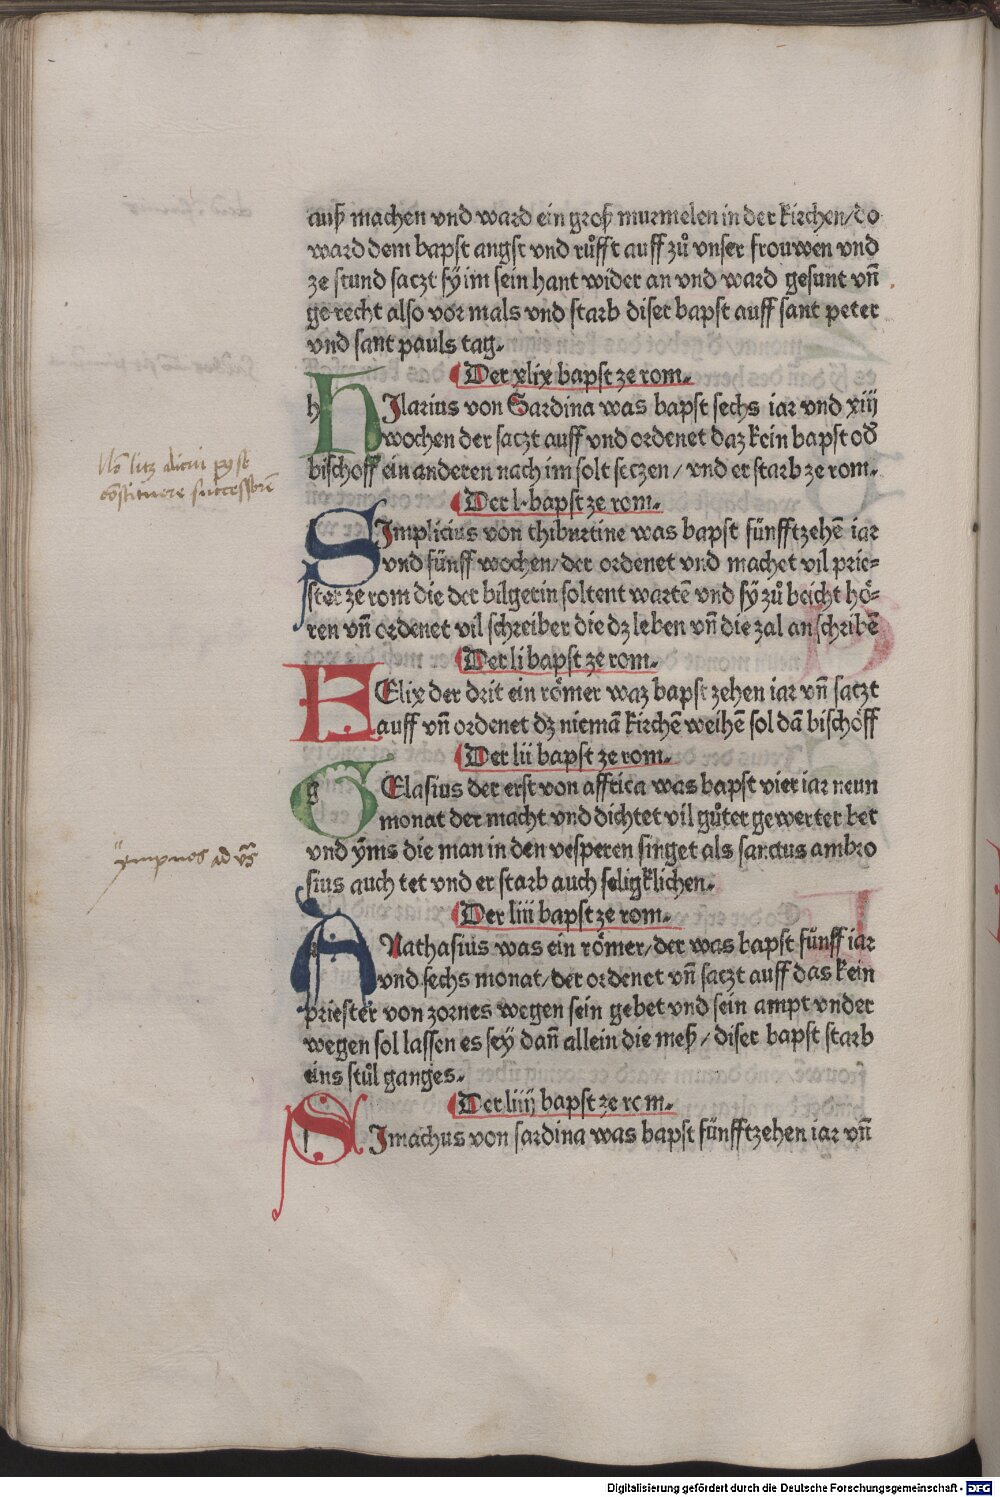 auß machen vnd ward ein groß murmelen in der kirchen/do
ward dem bapst angst vnd růfft auff zů vnser frouwen vnd
ze stund saczt sÿ im sein hant wider an vnd ward gesunt vn̄
gerecht also vor mals vnd starb diser bapst auff sant peter
vnd sant pauls tag.
Der xlix bapst ze rom.
h HJlarius von Sardina was bapst sechs iar vnd xiij
wochen der saczt auff vnd ordenet daz kein bapst od̕
bischoff ein anderen nach im solt seczen/ vnd er starb ze rom.
Nō licz alicui post
constituere successorē
Der l. bapst ze rom.
SJmplicius von thiburtine was bapst fünfftzehē iar
vnd fünff wochen/der ordenet vnd machet vil prie-
ster ze rom die der bilgerin soltent wartē vnd sÿ zů beicht hö-
ren vn̄ ordenet vil schreiber die dz leben vn̄ die zal an schribē
Der li bapst ze rom.
FElix der drit ein römer waz bapst zehen iar vn̄ saczt
auff vn̄ ordenet dz niemā kirchē weihē sol dā bischoff
Der lii bapst ze rom.
g GElasius der erst von affrica was bapst vier iar neun
monat der macht vnd dichtet vil gůter gewerter bet
vnd ÿms die man in den vesperen singet als sanctus ambro
sius auch tet vnd er starb auch seligklichen.
ympnos ad
Der liii bapst ze rom.
ANathasius was ein römer/der was bapst fünff iar
vnd sechs monat/der ordenet vn̄ saczt auff das kein
priester von zornes wegen sein gebet vnd sein ampt vnder
wegen sol lassen es seÿ dan̄ allein die meß/diser bapst starb
eins stůl ganges.
Der liiij bapst ze rom.
SJmachus von sardina was bapst fünfftzehen iar vn̄
Digitalisierung gefördert durch die Deutsche Forschungsgemeinschaft - DFG